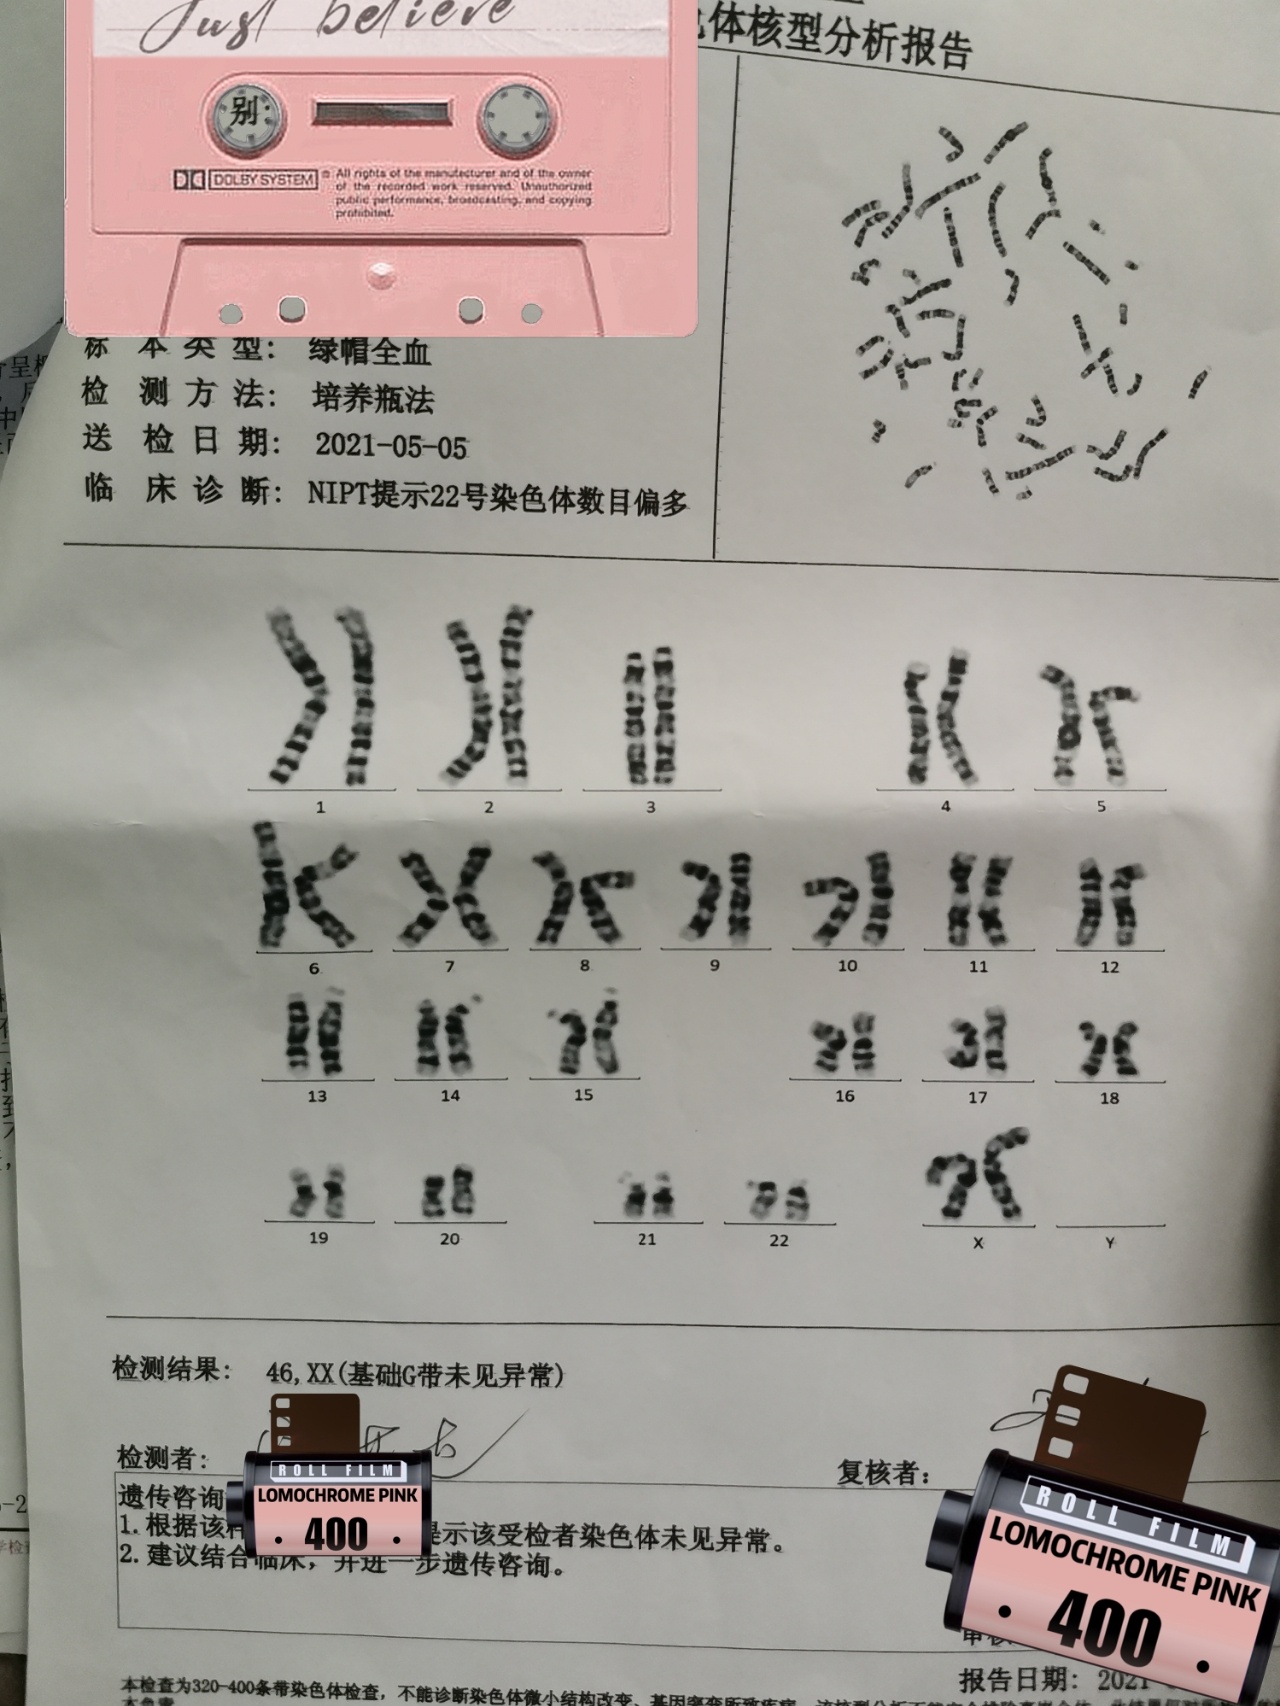 Just believe
体核型分析报告
别:
DOLBY SYSTEM
® All rights of the manufacturer and of the owner
of the recorded work reserved. Unauthorized
public performance, broadcasting, and copying
prohibited.
标 本 类 型: 绿帽全血
检 测 方 法: 培养瓶法
送 检 日 期: 2021-05-05
临 床 诊 断: NIPT提示22号染色体数目偏多
1 2 3 4 5
6 7 8 9 10 11 12
13 14 15 16 17 18
19 20 21 22 X Y
检测结果: 46,XX(基础G带未见异常)
检测者:
复核者:
遗传咨询
1.根据该 提示该受检者染色体未见异常。
2.建议结合临床，并进一步遗传咨询。
ROLL FILM
LOMOCHROME PINK
· 400 ·
ROLL FILM
LOMOCHROME PINK
· 400 ·
报告日期: 2021
本检查为320-400条带染色体检查，不能诊断染色体微小结构改变、基因突变所致疾病